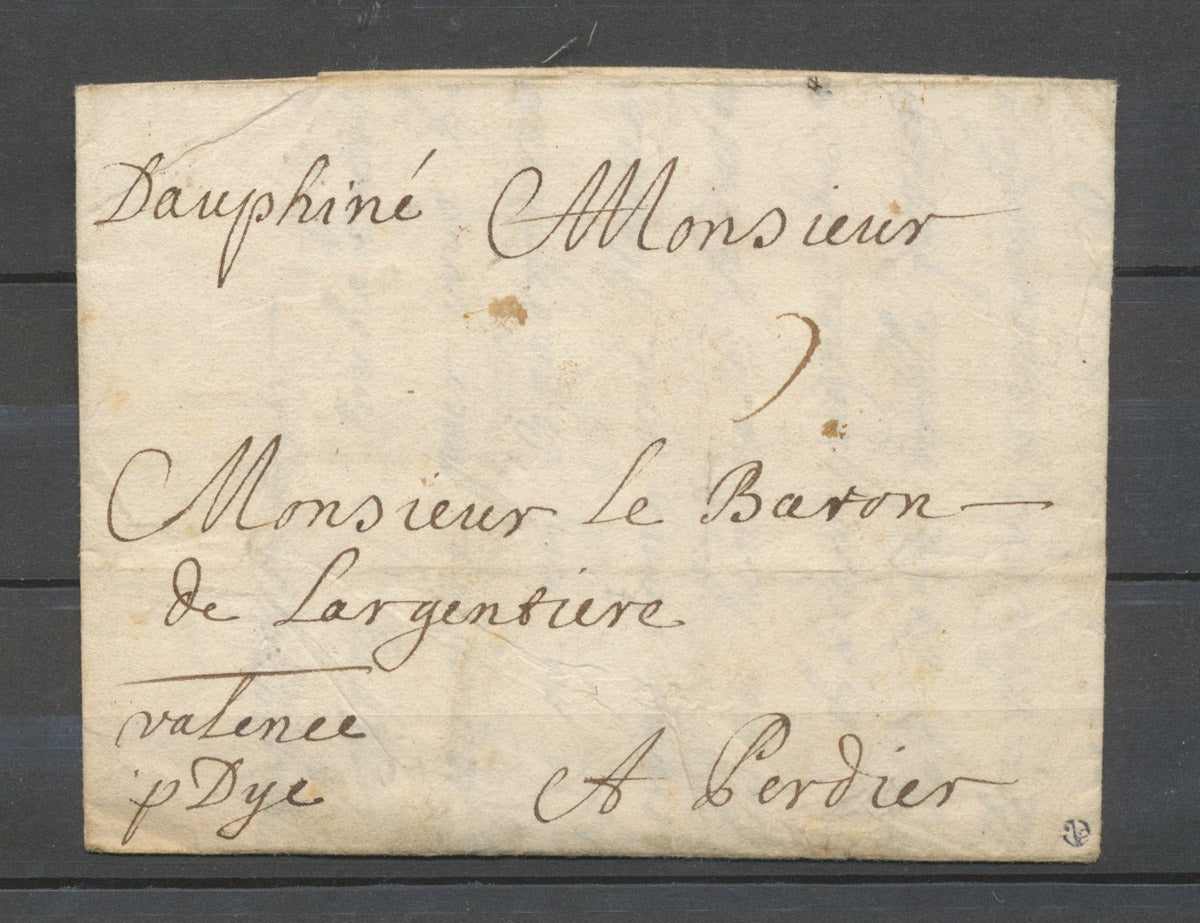 Dauphiné Monsieur
Monsieur le Baron
de Largentiere
valence
p Dye
A Perdier